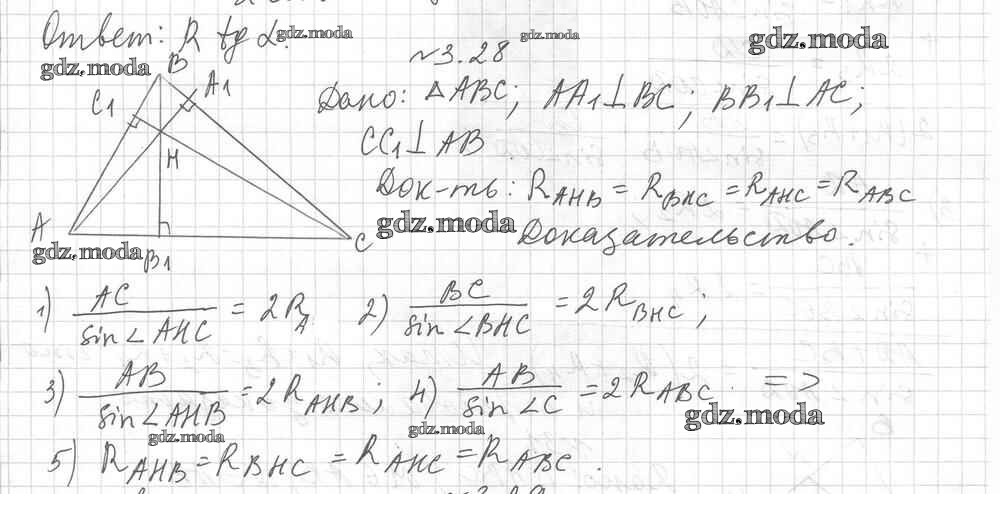 Ответ: R tg α. gdz.moda
gdz.moda
gdz.moda
gdz.moda
№3.28
B
A1
C1
H
A
C
B1
gdz.moda
Дано: △ABC; AA1⊥BC; BB1⊥AC;
CC1⊥AB.
Док-ть: R_AHB = R_BHC = R_AHC = R_ABC
gdz.moda
Доказательство.
1) AC / sin∠AHC = 2R_A 2) BC / sin∠BHC = 2R_BHC;
3) AB / sin∠AHB = 2R_AHB; 4) AB / sin∠C = 2R_ABC. =>
gdz.moda
gdz.moda
gdz.moda
5) R_AHB = R_BHC = R_AHC = R_ABC.